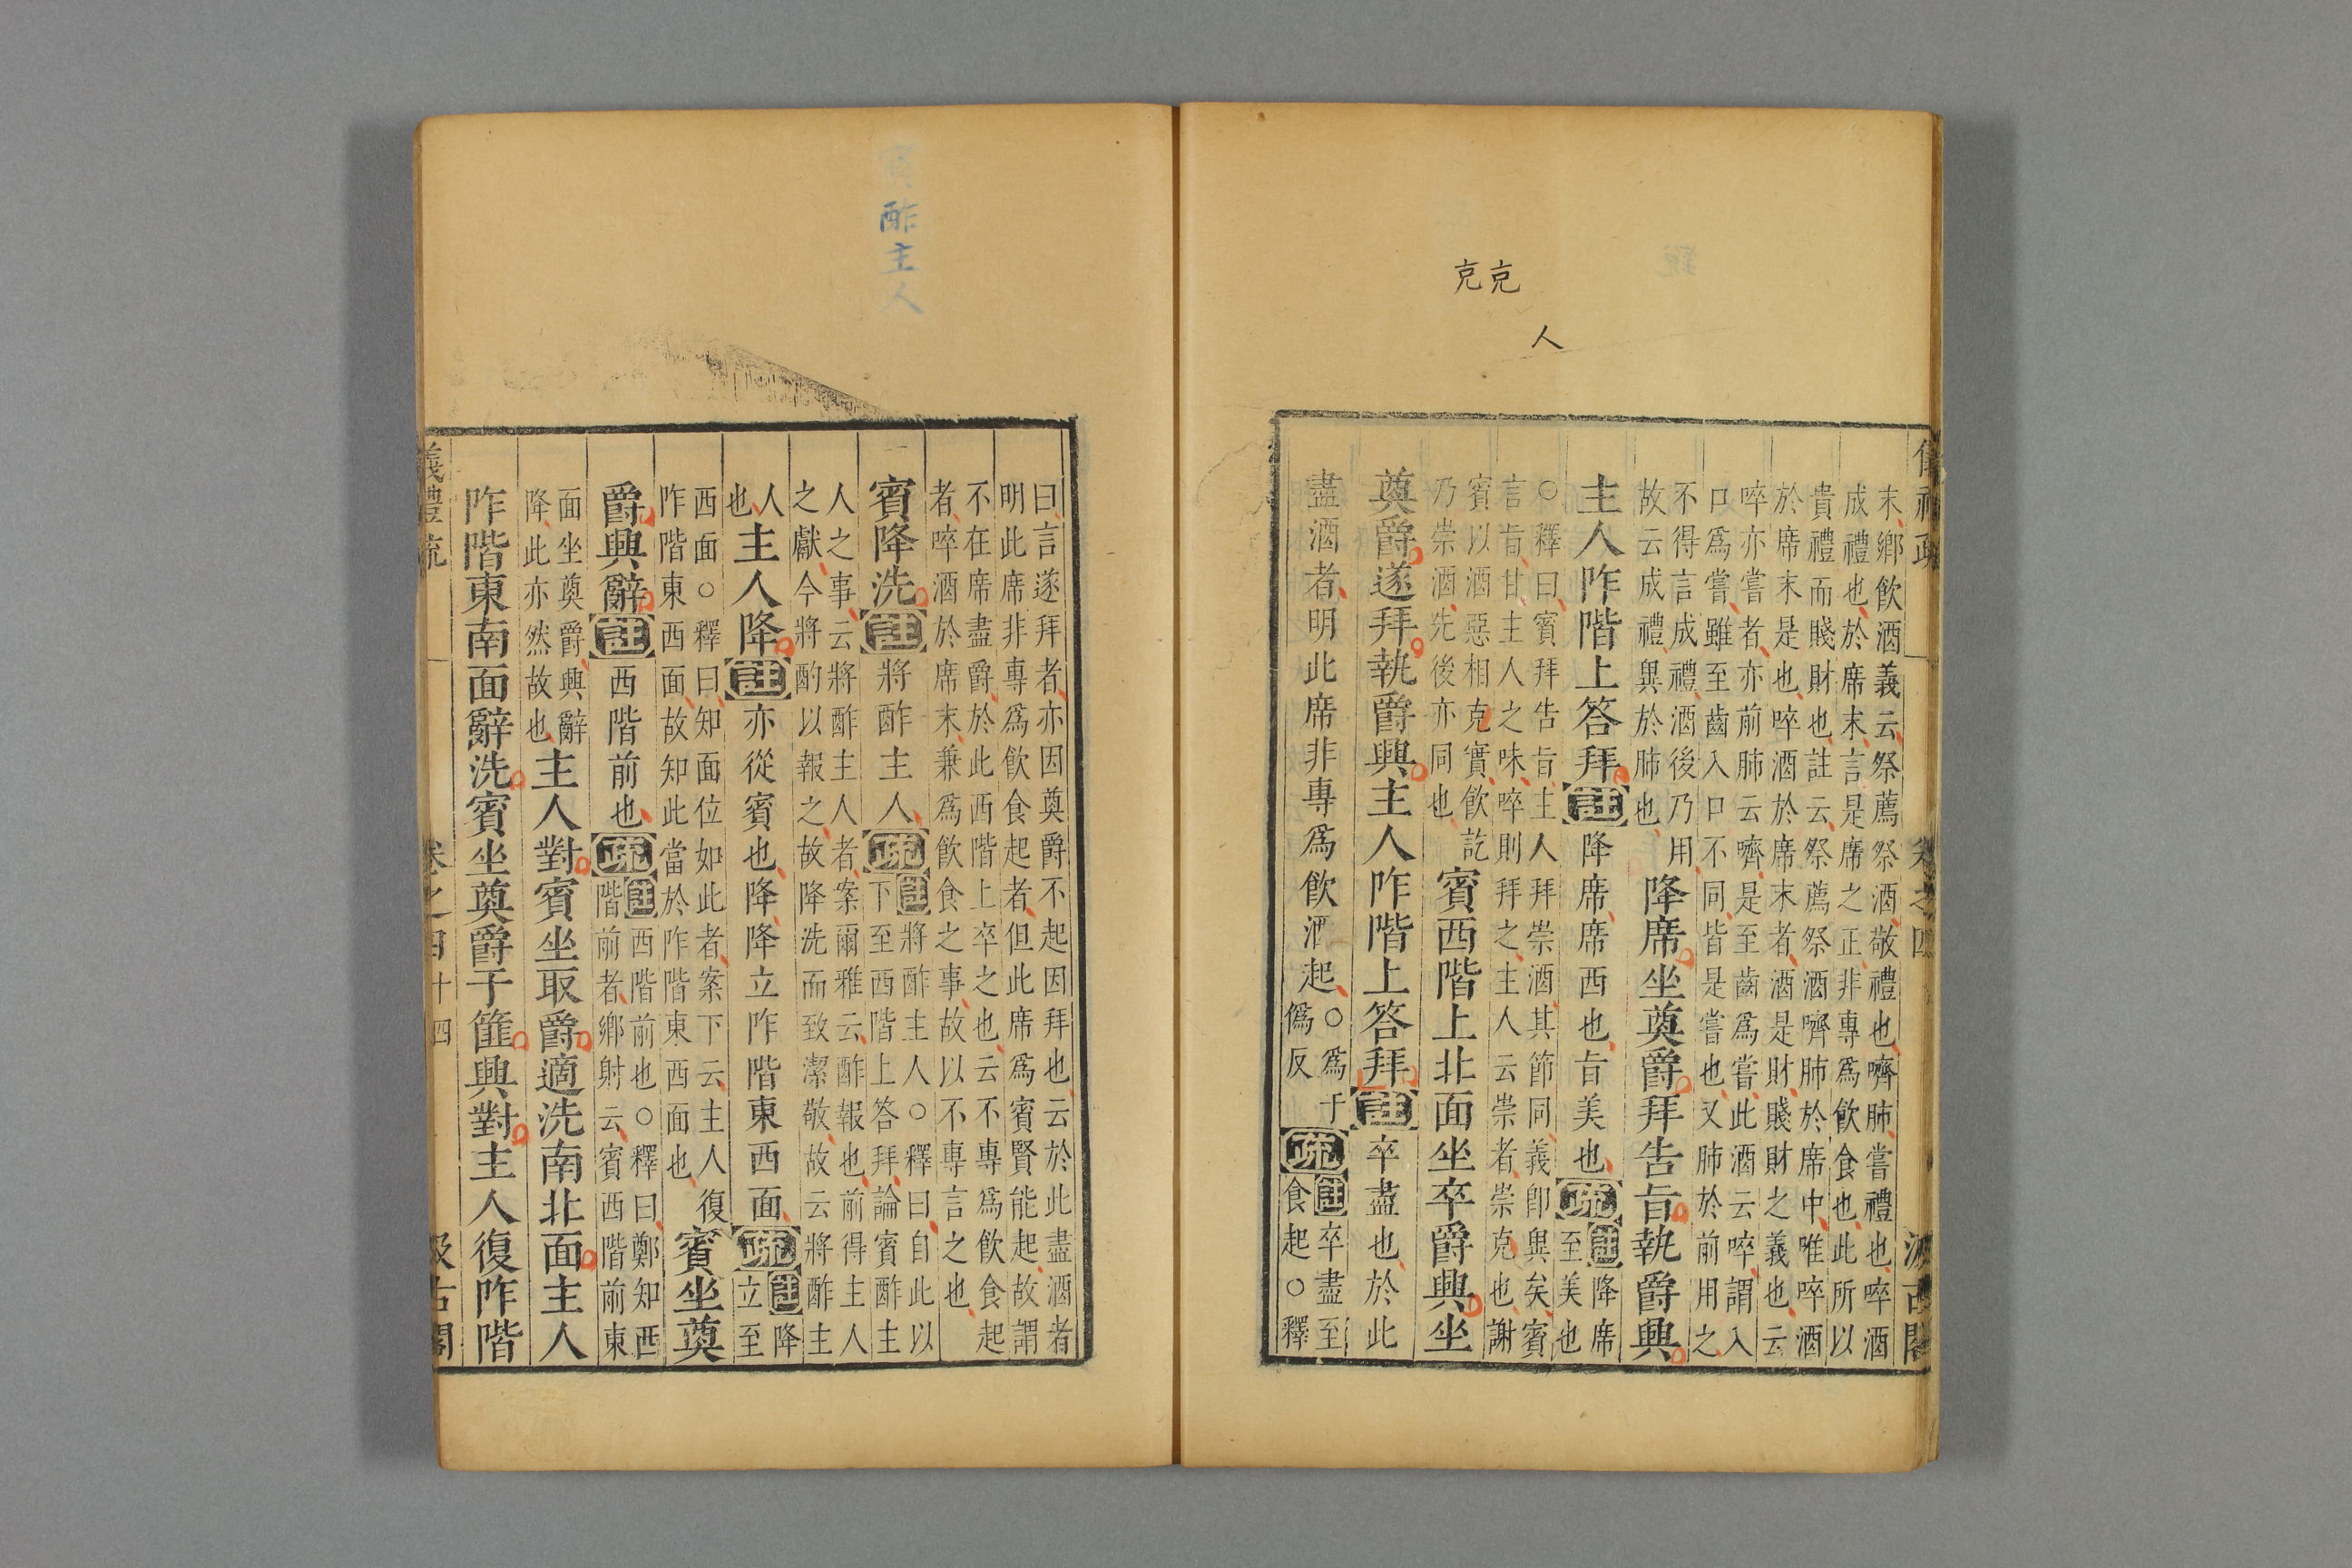 儀禮疏 卷之四 汲古閣
克克
人
末鄉飲酒義云祭薦祭酒敬禮也嚌肺嘗禮也啐酒
成禮也於席末言是席之正非專爲飲食也此所以
貴禮而賤財也註云祭薦祭酒嚌肺於席中唯啐酒
於席末是也啐酒於席末者酒是財賤財之義也云
啐亦嘗者亦前肺云嚌是至齒爲嘗此酒云啐謂入
口爲嘗雖至齒入口不同皆是嘗也又肺於前用之
不得言成禮酒後乃用
故云成禮異於肺也
降席坐奠爵拜告旨執爵興
主人阼階上答拜註降席席西也旨美也疏註降席至美也
○釋曰賓拜告旨主人拜崇酒其節同義卽異矣賓
言旨甘主人之味啐則拜之主人云崇者崇克也謝
賓以酒惡相克實飲訖
乃崇酒先後亦同也
賓西階上北面坐卒爵興坐
奠爵遂拜執爵興主人阼階上答拜註卒盡也於此
盡酒者明此席非專爲飲酒起○爲于僞反疏註卒盡至食起○釋
賓酢主人
曰言遂拜者亦因奠爵不起因拜也云於此盡酒者
明此席非專爲飲食起者但此席爲賓賢能起故謂
不在席盡爵於此西階上卒之也云不專爲飲食起
者啐酒於席末兼爲飲食之事故以不專言之也
賓降洗註將酢主人疏註將酢主人○釋曰自此以
下至西階上答拜論賓酢主
人之事云將酢主人者案爾雅云酢報也前得主人
之獻今將酌以報之故降洗而致潔敬故云將酢主
人
也
主人降註亦從賓也降降立阼階東西面疏註降
立至
西面○釋曰知面位如此者案下云主人復
阼階東西面故知此當於阼階東西面也
賓坐奠
爵興辭註西階前也疏註西階前也○釋曰鄭知西
階前者鄉射云賓西階前東
面坐奠爵興辭
降此亦然故也
主人對賓坐取爵適洗南北面主人
阼階東南面辭洗賓坐奠爵于篚興對主人復阼階
義禮疏 卷之四 十四 汲古閣